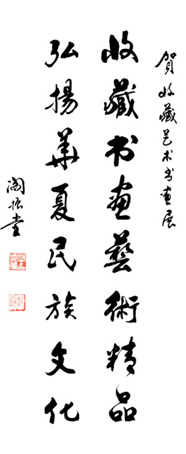 贺收藏艺术书画展
收藏书画艺術精品
弘揚華夏民族文化
阎振堂